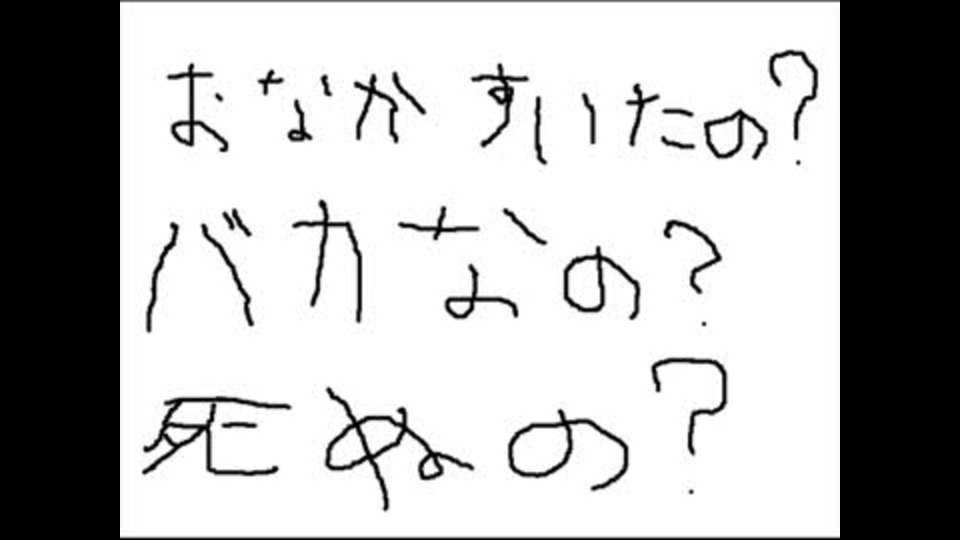 おなかすいたの?
バカなの?
死ぬの?